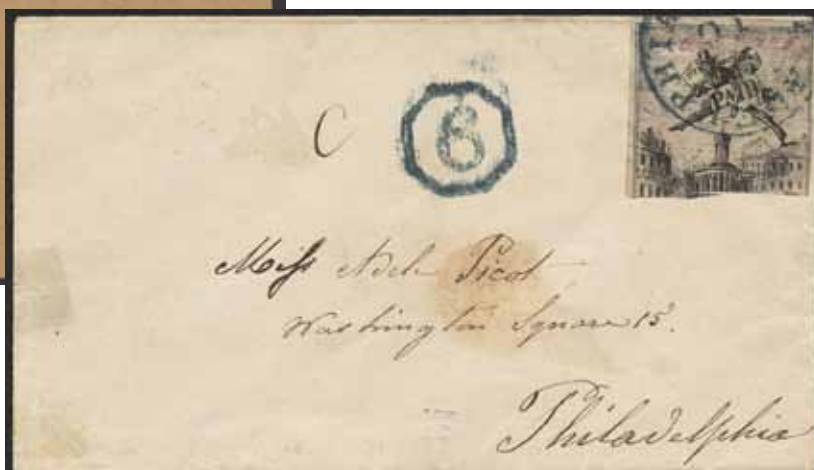 PHILA
PAID
C
6
Miſs Adele Picot
Washington Square 15.
Philadelphia